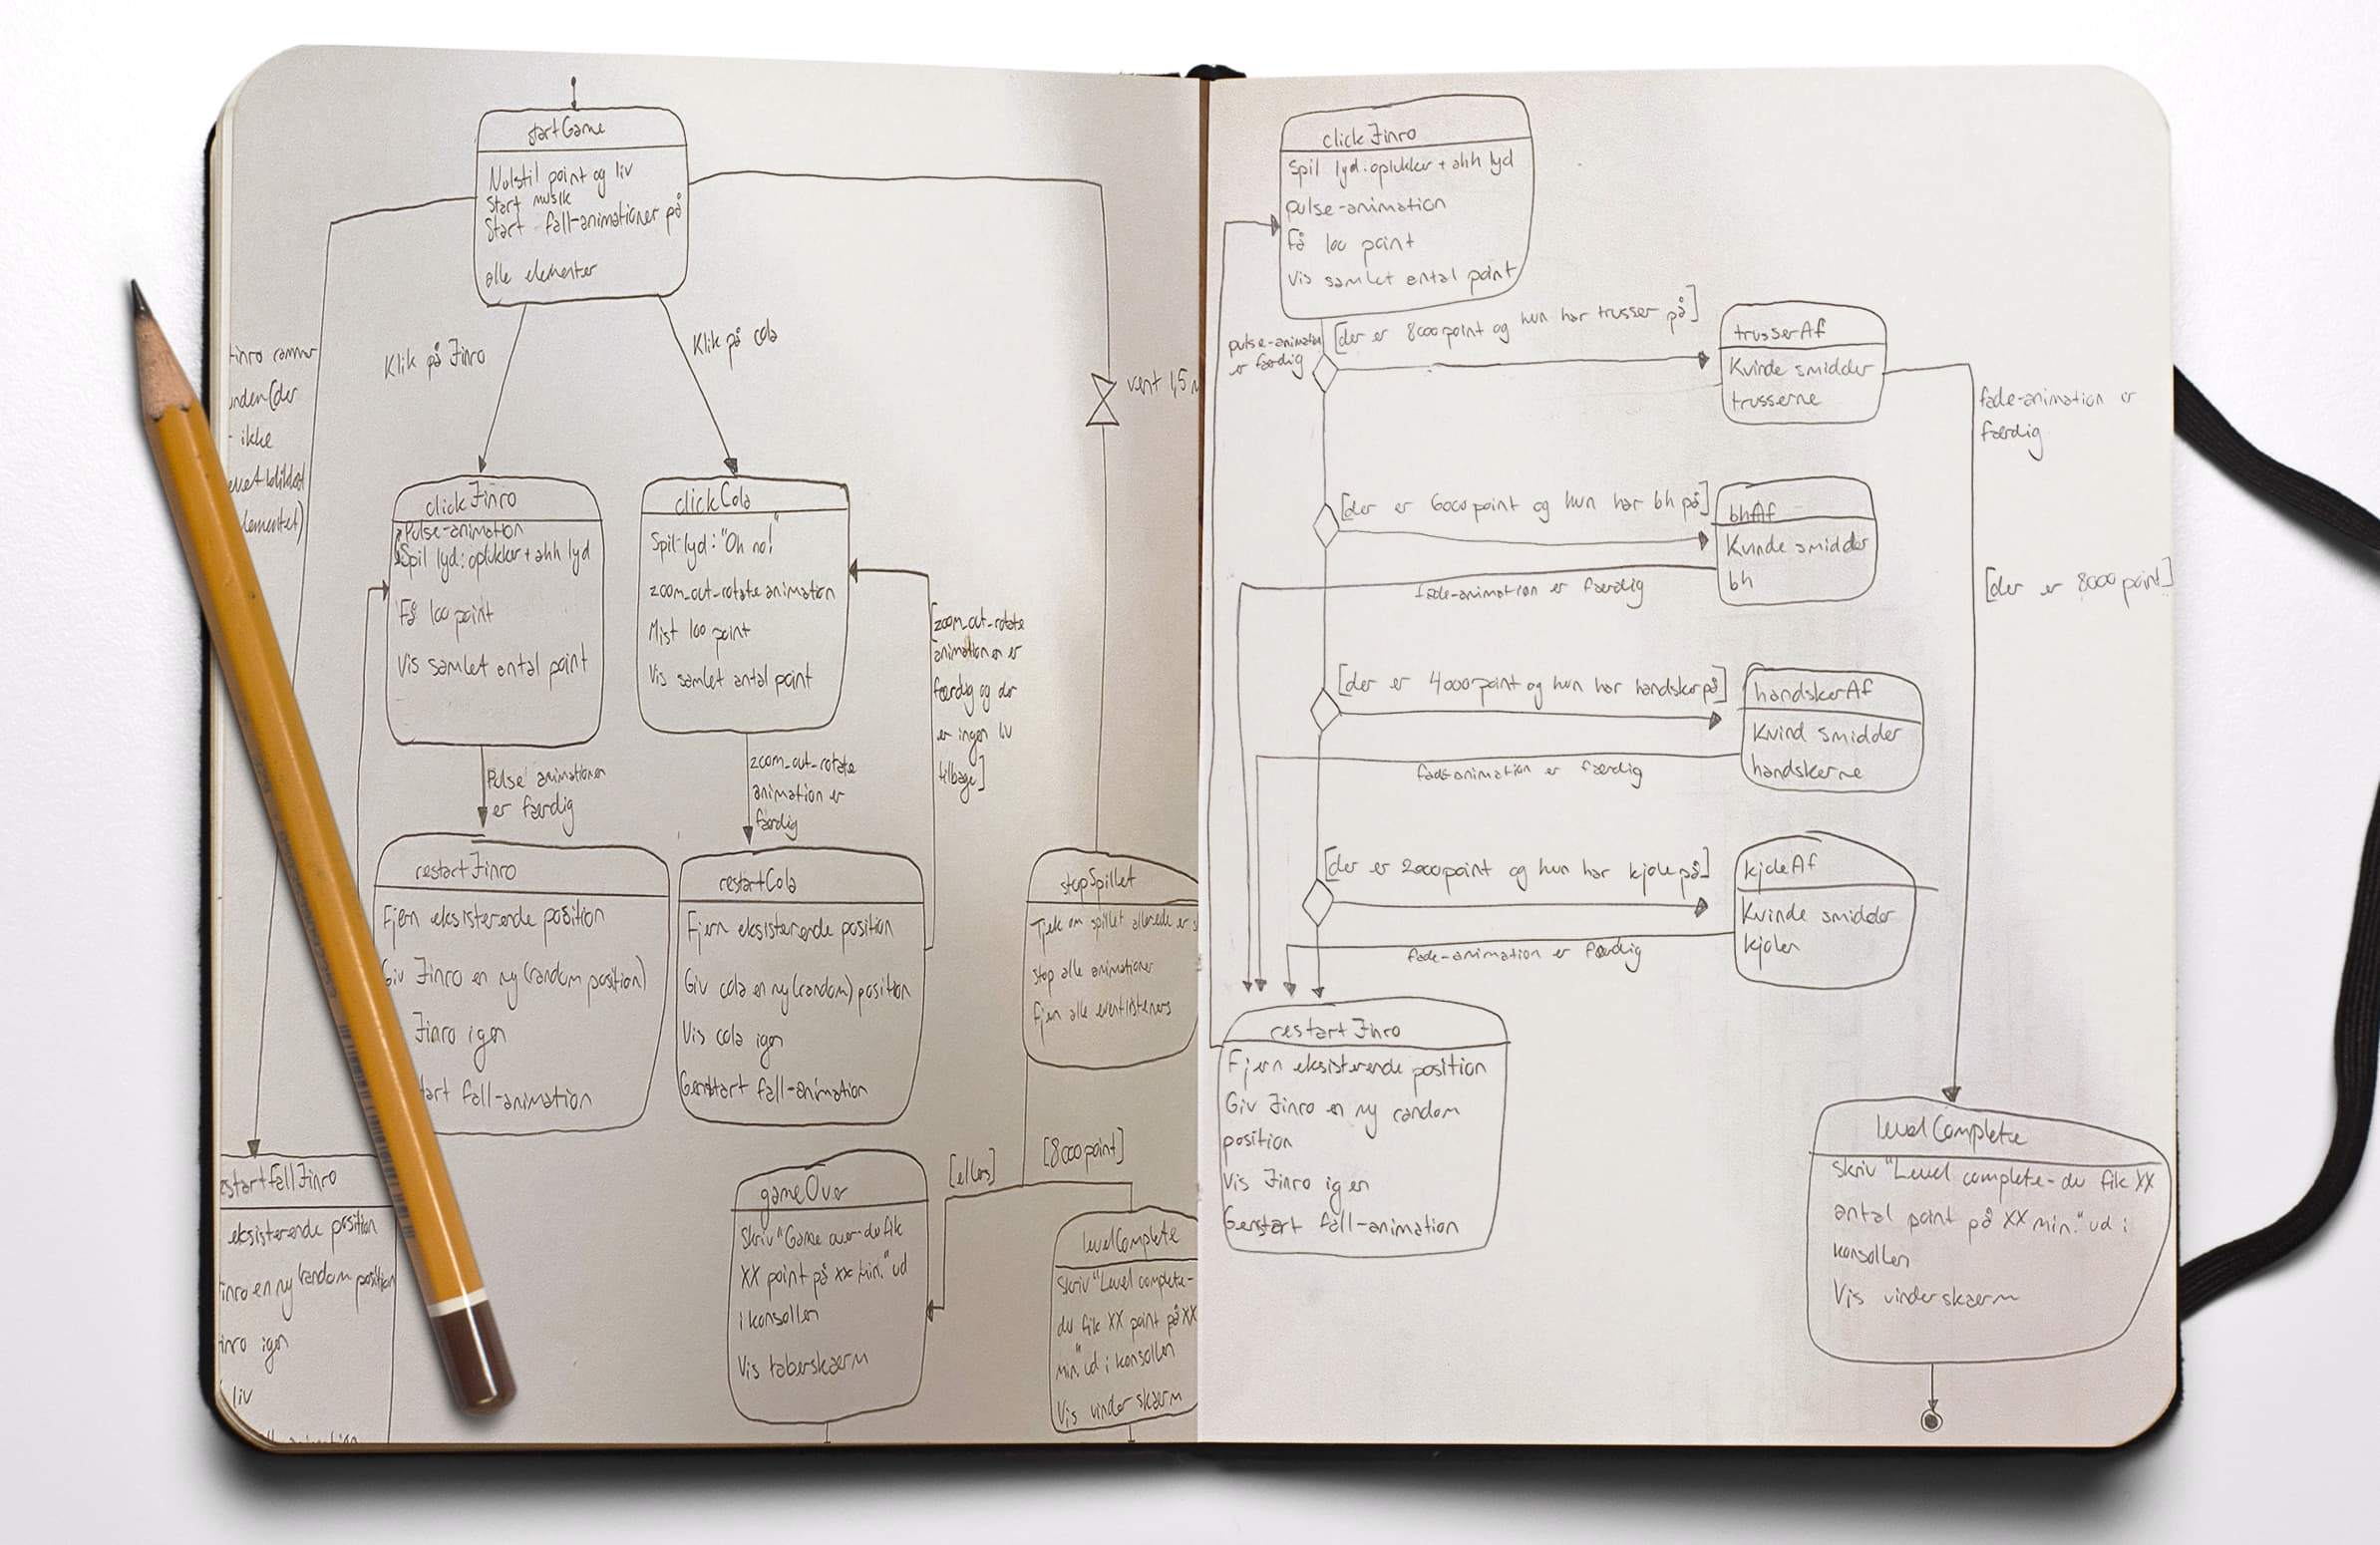 startGame
Nulstil point og liv
Start musik
Start fall-animationer på
alle elementer
Klik på Jinro
Klik på cola
vent 1,5
ikke
clickJinro
Pulse-animation
Spil lyd: oplukker + ahh lyd
Få 100 point
Vis samlet antal point
clickCola
Spil lyd: "Oh no!"
zoom_out-rotate animation
Mist 100 point
Vis samlet antal point
[zoom_out-rotate
animationen er
færdig og der
er ingen liv
tilbage]
Pulse animationen
er færdig
zoom_out-rotate
animation er
færdig
restartJinro
Fjern eksisterende position
Giv Jinro en ny (random position)
Jinro igen
fall-animation
restartCola
Fjern eksisterende position
Giv cola en ny (random) position
Vis cola igen
Genstart fall-animation
stopSpillet
Tjek om spillet allerede er
stop alle animationer
Fjern alle eventlisteners
[ellers]
[8000 point]
eksisterende position
en ny (random position
igen
liv
gameOver
Skriv "Game over - du fik
XX point på xx min." ud
i konsollen
Vis taberskærm
levelComplete
Skriv "Level complete -
du fik XX point på XX
min." ud i konsollen
Vis vinderskærm
clickJinro
Spil lyd: oplukker + ahh lyd
pulse-animation
Få 100 point
Vis samlet antal point
pulse-animation
er færdig
[der er 8000 point og hun har trusser på]
trusserAf
Kvinde smidder
trusserne
fade-animation er
færdig
[der er 6000 point og hun har bh på]
bhAf
Kvinde smidder
bh
fade-animation er færdig
[der er 8000 point]
[der er 4000 point og hun har handsker på]
handskerAf
Kvind smidder
handskerne
fade-animation er færdig
[der er 2000 point og hun har kjole på]
kjoleAf
Kvinde smidder
kjolen
fade-animation er færdig
restartJinro
Fjern eksisterende position
Giv Jinro en ny random
position
Vis Jinro igen
Genstart fall-animation
levelComplete
skriv "Level complete - du fik XX
antal point på XX min." ud i
konsollen
Vis vinderskærm